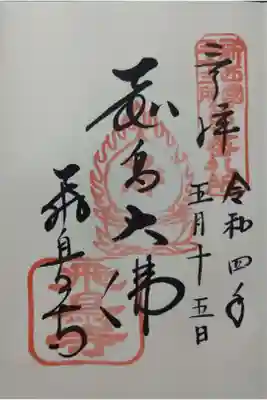 奉拝
令和四年
五月十五日
飛鳥大佛
飛鳥寺
飛鳥寺